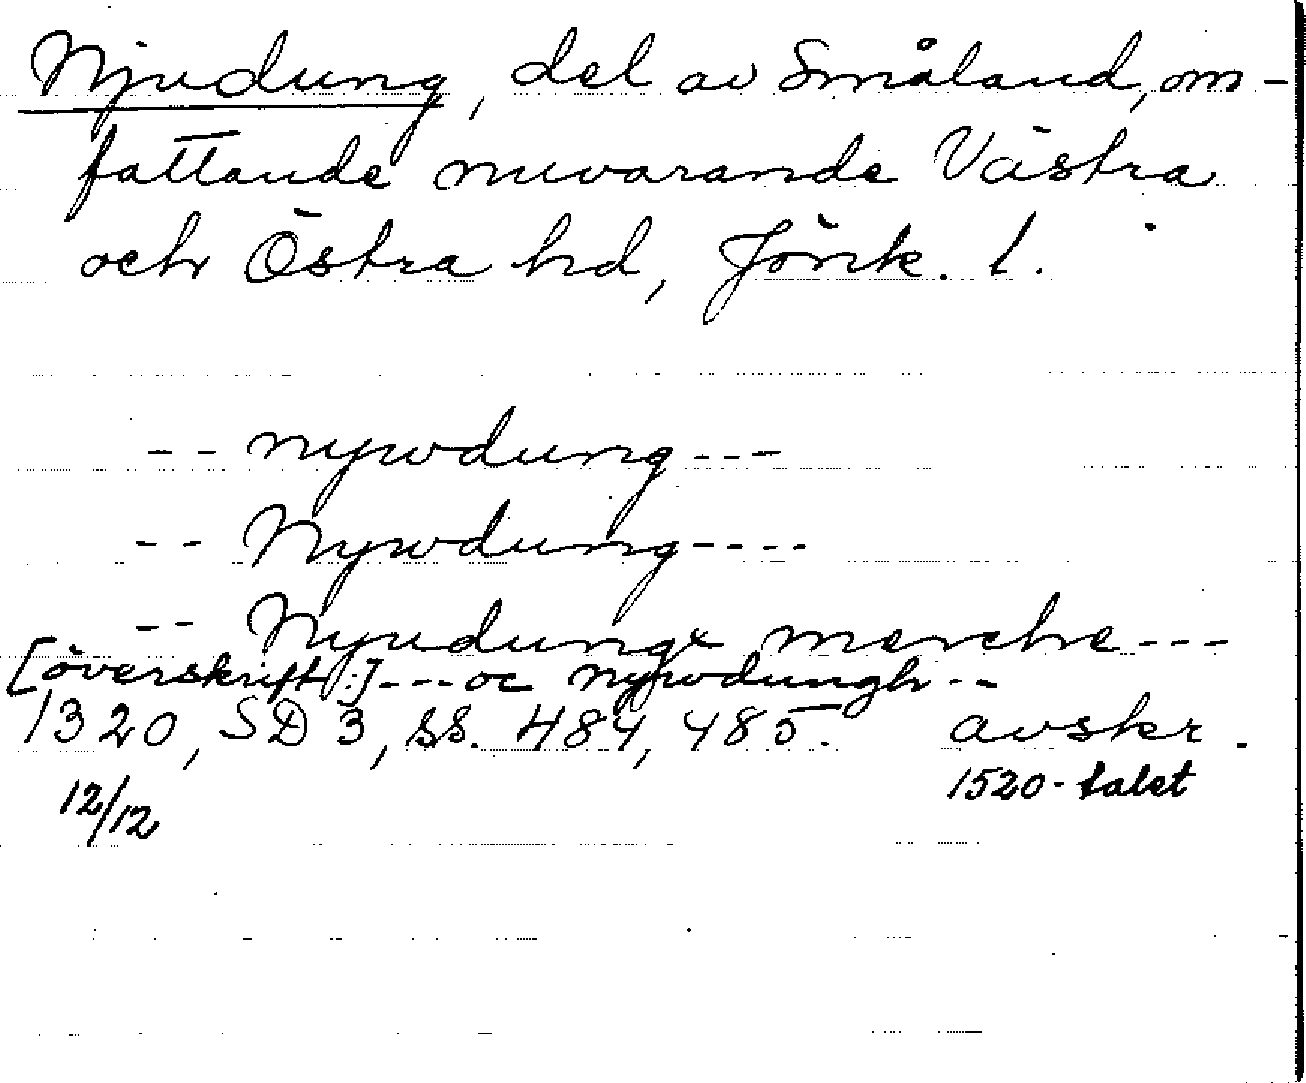 Njudung, del av Småland, om-
fattande nuvarande Västra
och Östra hd, Jönk. l.
-- nywdung ---
-- Nywdung ----
-- Nyudungx merche ---
[överskrift:] --- oc nywdungh --
1320, SD 3, ss. 484, 485. avskr.
12/12 1520-talet